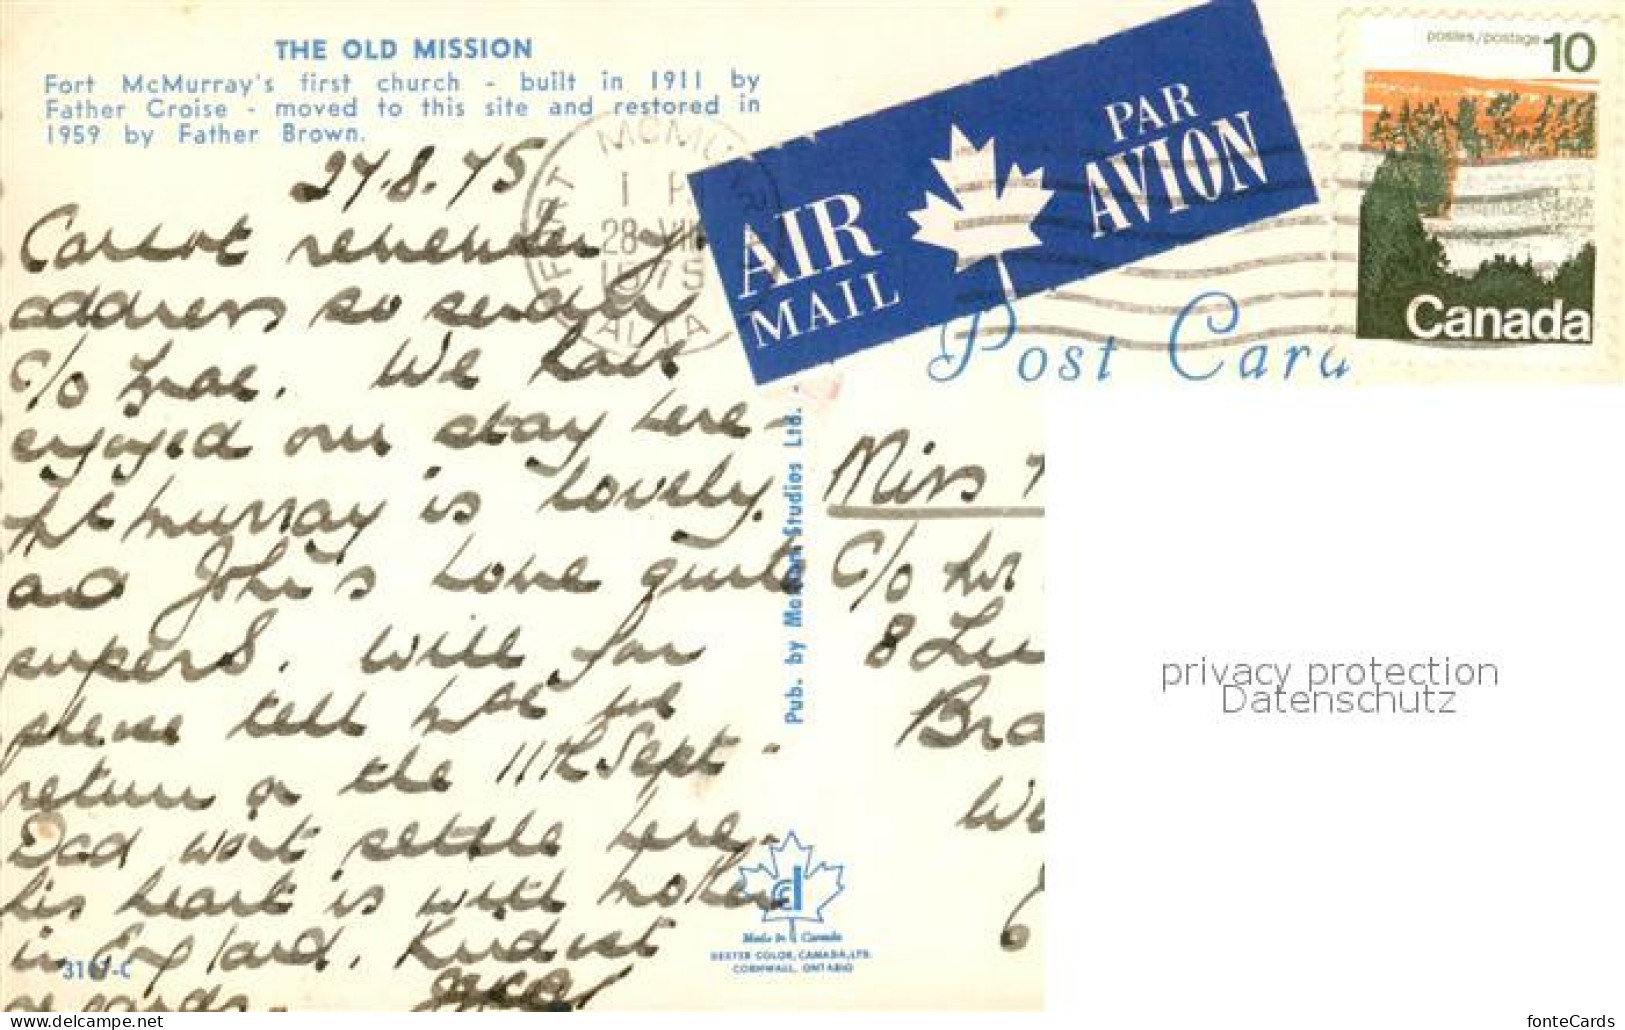 THE OLD MISSION
Fort McMurray's first church - built in 1911 by
Father Croise - moved to this site and restored in
1959 by Father Brown.
27.8.75
Cannot remember yr
address so sending
c/o Mrae. We have
enjoyed our stay here -
Ft Murray is lovely.
and John's home quite
superb. Will you
please tell that we
return on the 11th Sept -
Dad won't settle here -
his heart is with mother
in England. Kindest
regards.
3107-C
FORT MCMURRAY
1 P
28 VIII
1975
ALTA
AIR MAIL
PAR AVION
postes/postage 10
Canada
Post Card
Pub. by Studios Ltd.
Miss
C/o
8 Lu
Bra
We
6
Made In Canada
DEXTER COLOR, CANADA, LTD.
CORNWALL, ONTARIO
privacy protection
Datenschutz
www.delcampe.net
fonteCards